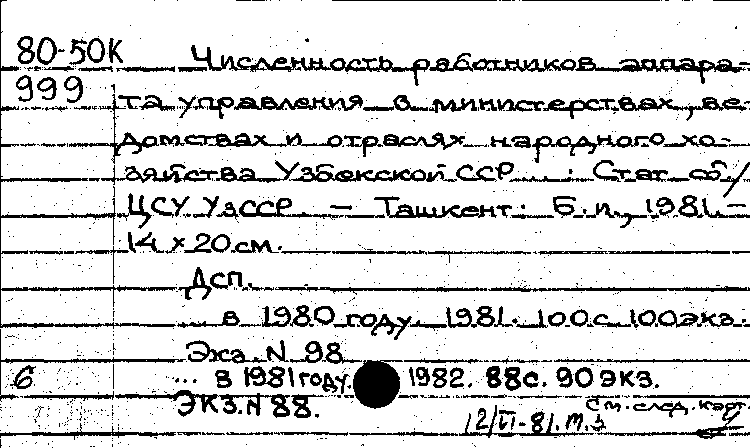 80-50К Численность работников аппара-
999 та управления в министерствах, ве-
домствах и отраслях народного хо-
зяйства Узбекской ССР... : Стат сб/
ЦСУ УзССР. — Ташкент: Б.и., 1981. —
14 x 20 см.
Дсп.
... в 1980 году. 1981. 100 с 100 экз.
Экз. N 98
6 ... в 1981 году. 1982. 88с. 90 экз.
Экз. N 88.
см. след. карт.
12/VI-81. т. 3